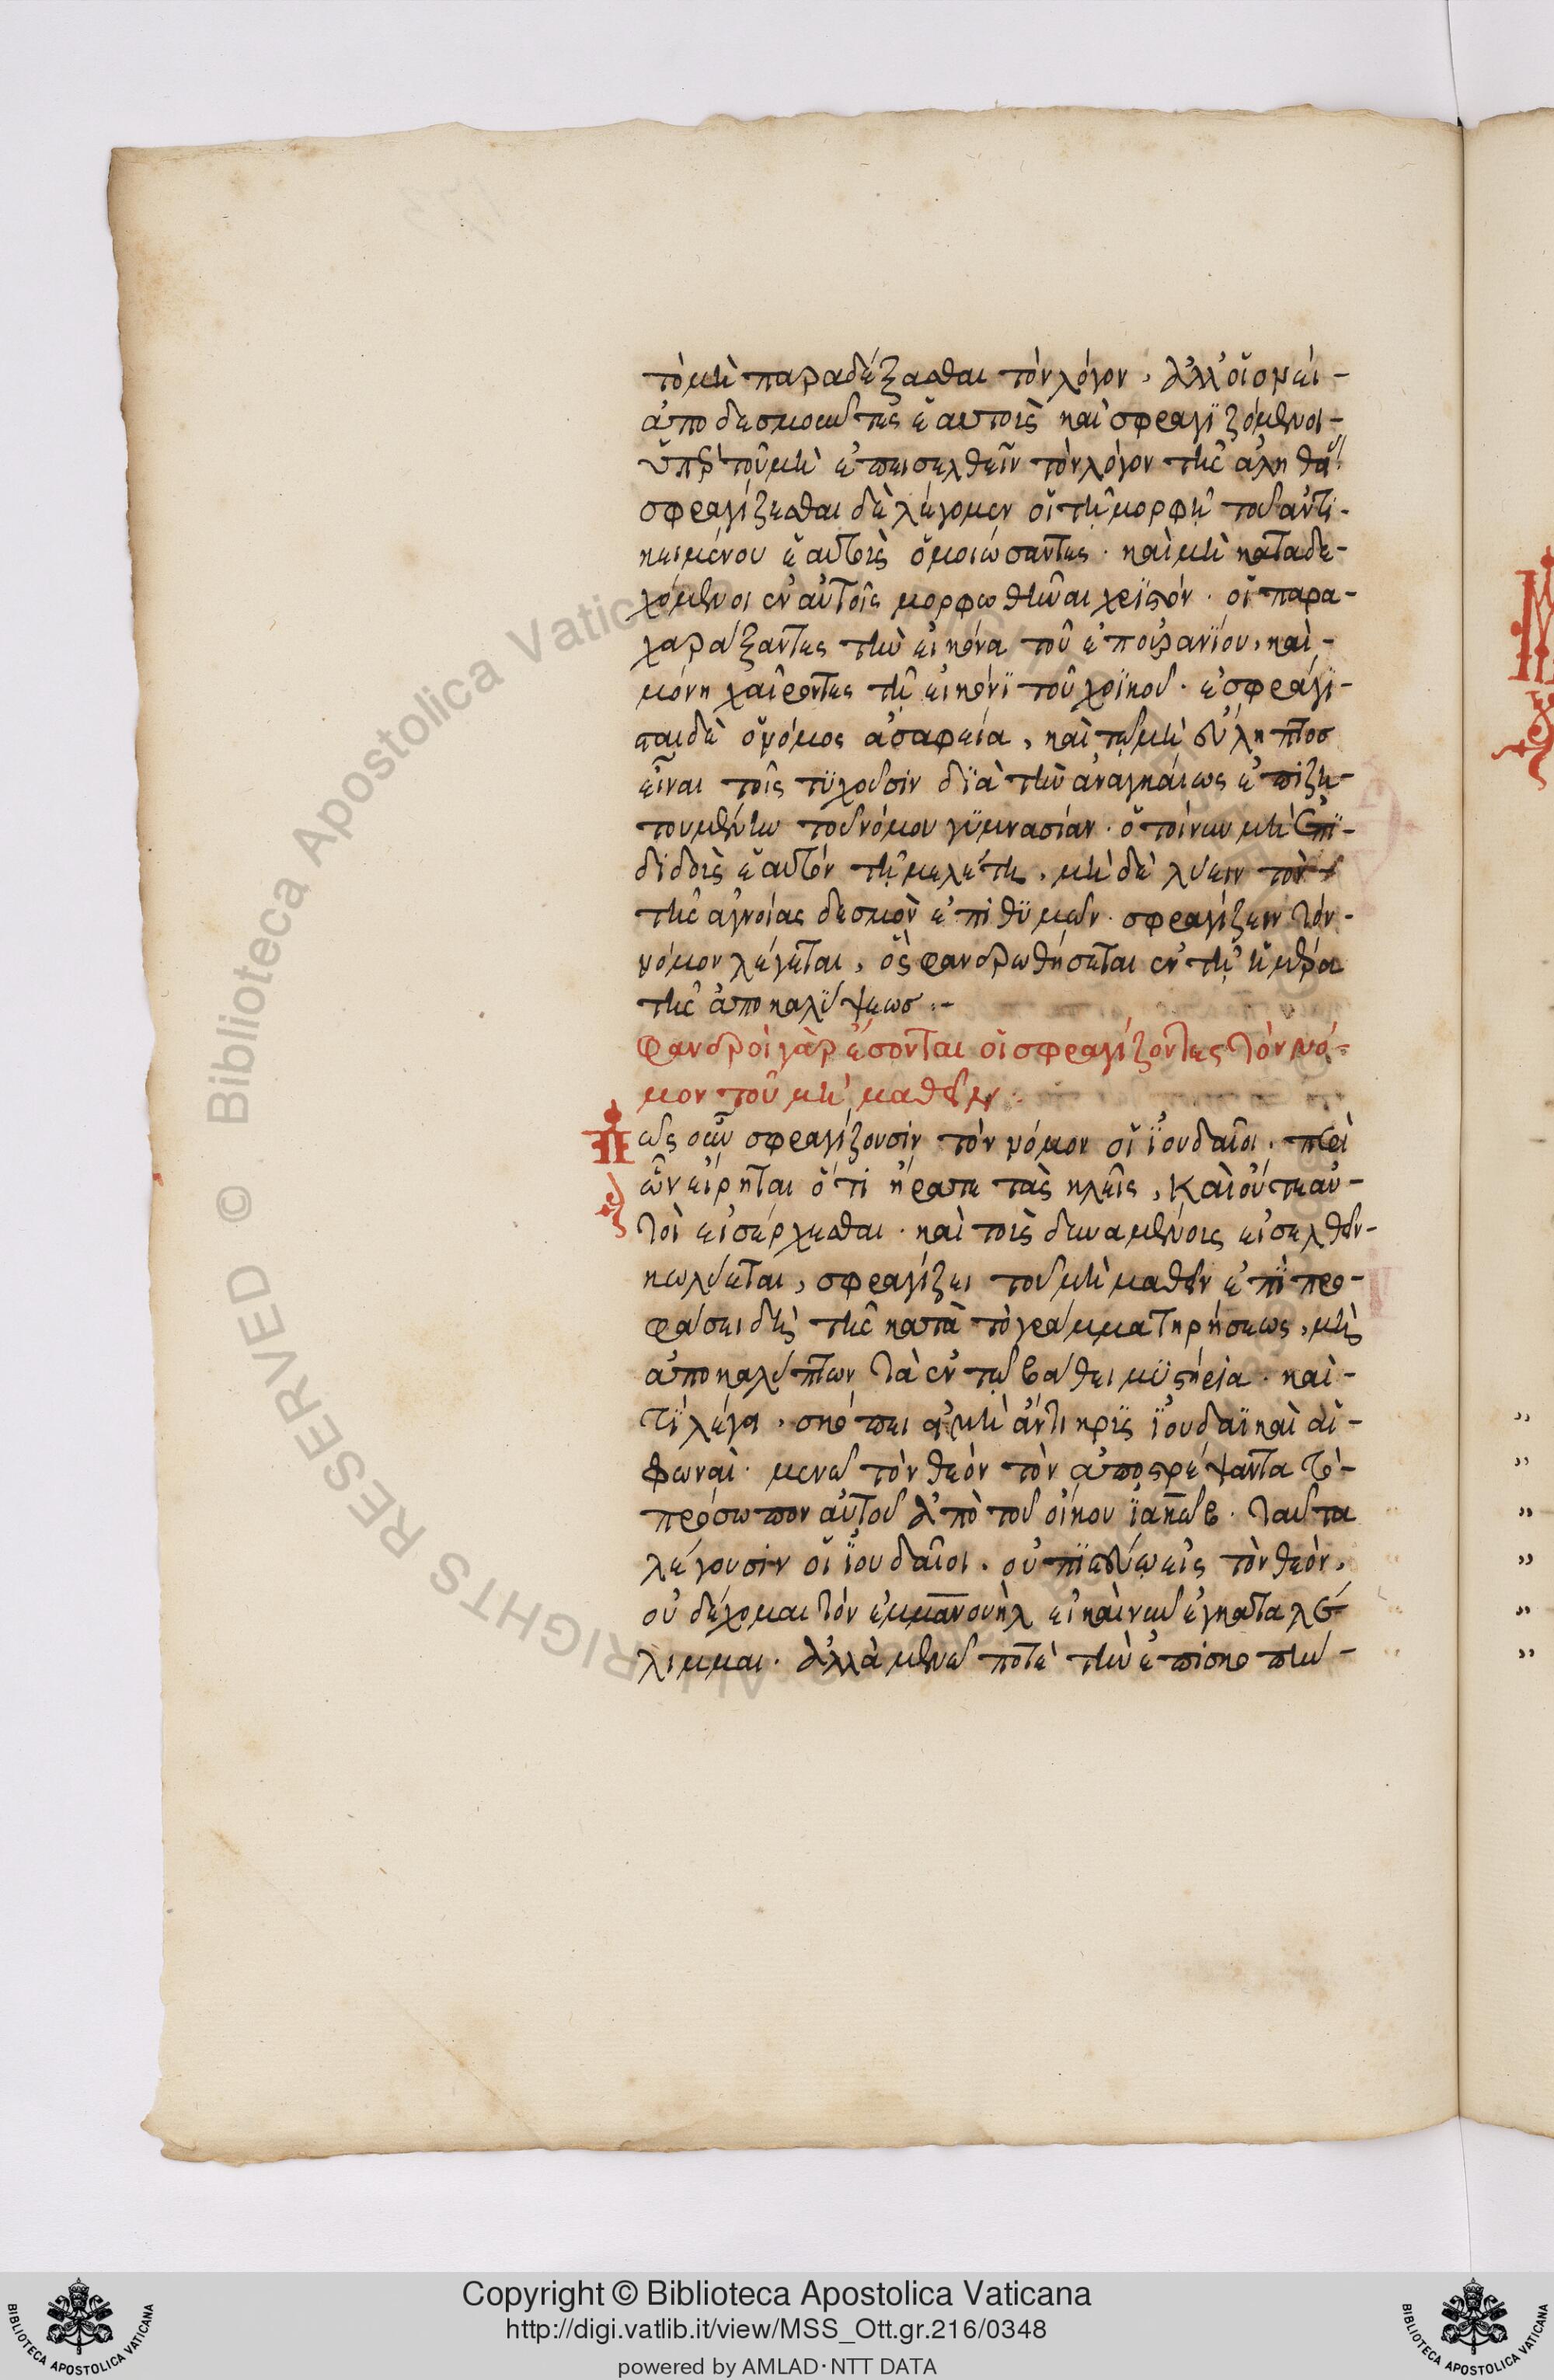 τὸ μὴ παραδέξασθαι τὸν λόγον, ἀλλ' οἱονεὶ-
ἀποδεσμοῦντες ἑαυτοὺς καὶ σφραγιζόμενοι-
ὑπὲρ τοῦ μὴ ἐπεισελθεῖν τὸν λόγον τῆς ἀληθείας
σφραγίζεσθαι δὲ λέγομεν οἱ τῇ μορφῇ τοῦ ἀντι-
κειμένου ἑαυτοὺς ὁμοιώσαντες. καὶ μὴ καταδε-
χόμενοι ἐν αὐτοῖς μορφωθῆναι χριστόν. οἱ παρα-
χαράξαντες τὴν εἰκόνα τοῦ ἐπουρανίου, καὶ-
μόνῃ χαίροντες τῇ εἰκόνι τοῦ χοϊκοῦ. ἐσφράγι-
σται δὲ ὁ νόμος ἀσαφεία, καὶ τῷ μὴ εὔληπτος
εἶναι τοῖς τυχοῦσιν διὰ τὴν ἀναγκαίως ἐπιζη-
τουμένην τοῦ νόμου γυμνασίαν. ὁ τοίνυν μὴ ἐπι-
διδοὺς ἑαυτὸν τῇ μελέτῃ, μὴ δὲ λύειν τὸν
τῆς ἀγνοίας δεσμὸν ἐπιθυμῶν. σφραγίζειν τὸν-
νόμον λέγεται, ὃς φανερωθήσεται ἐν τῇ ἡμέρα
τῆς ἀποκαλύψεως.-
Φανεροὶ γὰρ ἔσονται οἱ σφραγίζοντες τὸν νό-
μον τοῦ μὴ μαθεῖν.
Πῶς οὖν σφραγίζουσιν τὸν νόμον οἱ ἰουδαῖοι. περὶ
ὧν εἴρηται ὅτι ἤρατε τὰς κλεῖς, καὶ οὔτε αὐ-
τοὶ εἰσέρχεσθαι. καὶ τοῖς δυναμένοις εἰσελθεῖν-
κωλύεται, σφραγίζει τοῦ μὴ μαθεῖν ἐπὶ προ-
φάσει δῆς τῆς κατὰ τὸ γράμμα τηρήσεως, μὴ
ἀποκαλύπτων τὰ ἐν τῷ βάθει μυστήρια. καὶ-
τί λέγει, σκόπει εἰ μὴ ἄντικρις ἰουδαϊκαὶ αἱ-
φωναί. μενῶ τὸν θεὸν τὸν ἀποστρέψαντα τὸ-
πρόσωπον αὐτοῦ ἀπὸ τοῦ οἴκου ἰακώβ. ταῦτα
λέγουσιν οἱ ἰουδαῖοι. οὐ πιστεύω εἰς τὸν θεόν,
οὐ δέχομαι τὸν ἐμμανουὴλ εἰ καὶ νῦν ἐγκαταλέ-
λιμμαι. ἀλλὰ μενῶ ποτὲ τὴν ἐπισκοπὴν-
Copyright © Biblioteca Apostolica Vaticana
http://digi.vatlib.it/view/MSS_Ott.gr.216/0348
powered by AMLAD·NTT DATA